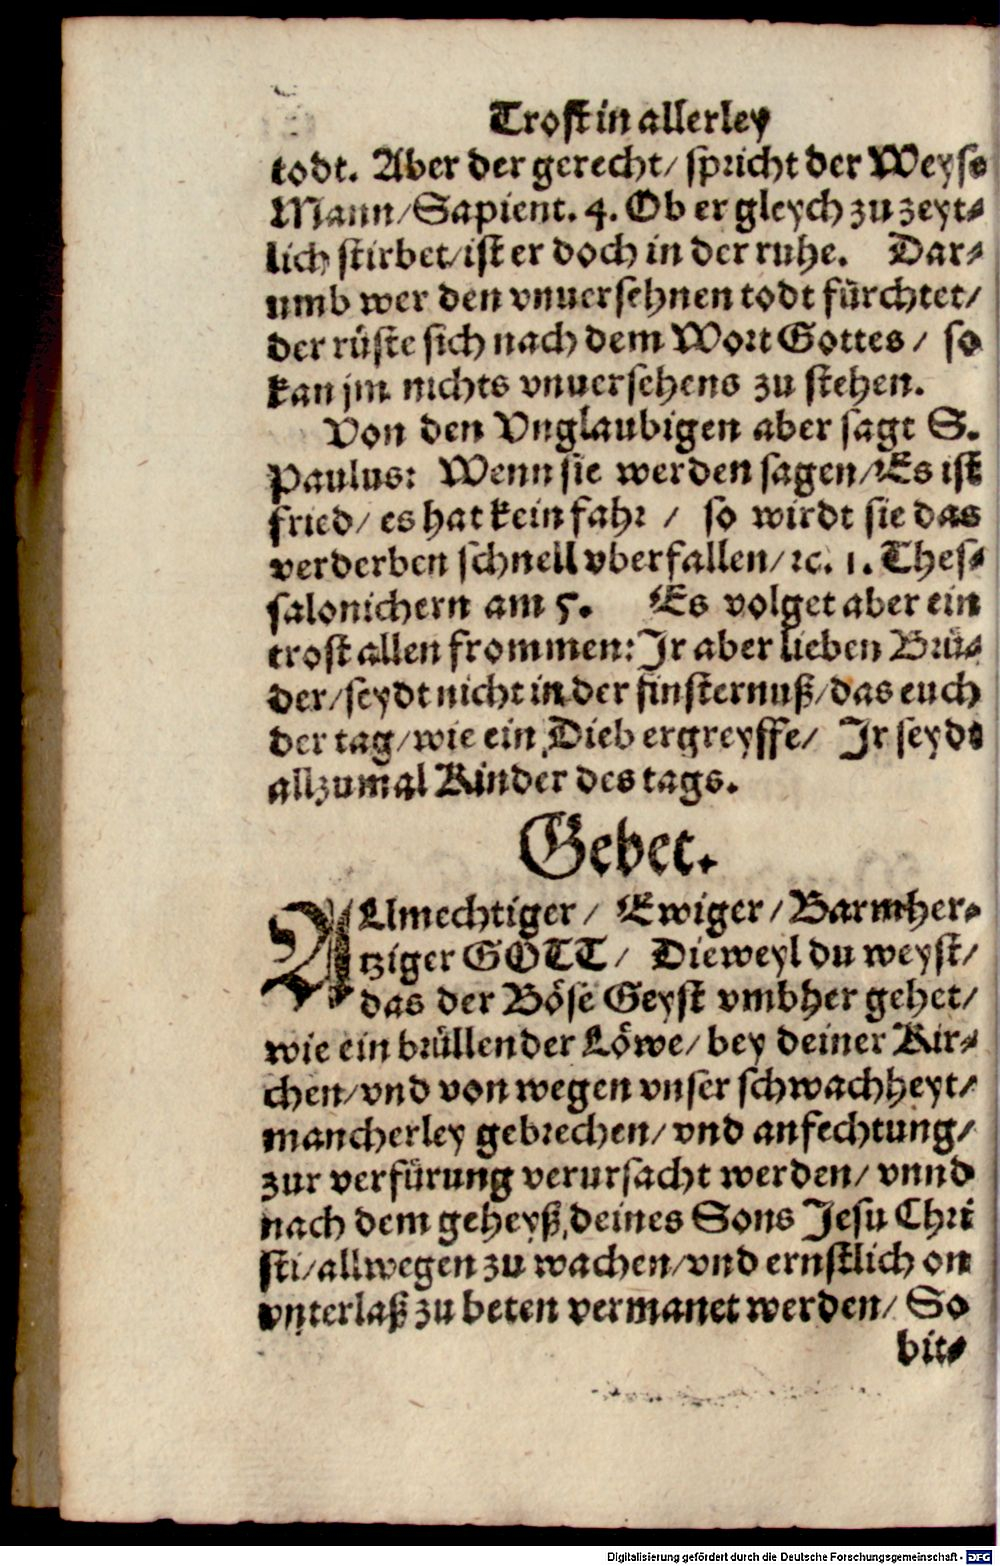 Trost in allerley
todt. Aber der gerecht/ spricht der Weyse
Mann/Sapient. 4. Ob er gleych zu zeyt⸗
lich stirbet/ist er doch in der ruhe. Dar⸗
umb wer den vnuersehnen todt fürchtet/
der rüste sich nach dem Wort Gottes/ so
kan jm nichts vnuersehens zu stehen.
Von den Vnglaubigen aber sagt S.
Paulus: Wenn sie werden sagen/Es ist
fried/ es hat kein fahr/ so wirdt sie das
verderben schnell vberfallen/ꝛc. 1. Thes⸗
salonichern am 5. Es volget aber ein
trost allen frommen: Jr aber lieben Brü⸗
der/seydt nicht in der finsternuß/das euch
der tag/wie ein Dieb ergreyffe/ Jr seydt
allzumal Kinder des tags.
Gebet.
ALlmechtiger/ Ewiger/Barmher⸗
tziger GOTT/ Dieweyl du weyst/
das der Böse Geyst vmbher gehet/
wie ein brüllender Löwe/bey deiner Kir⸗
chen/vnd von wegen vnser schwachheyt/
mancherley gebrechen/vnd anfechtung/
zur verfürung verursacht werden/ vnnd
nach dem geheyß deines Sons Jesu Chri
sti/allwegen zu wachen/vnd ernstlich on
vnterlaß zu beten vermanet werden/ So
bit⸗
Digitalisierung gefördert durch die Deutsche Forschungsgemeinschaft - DFG